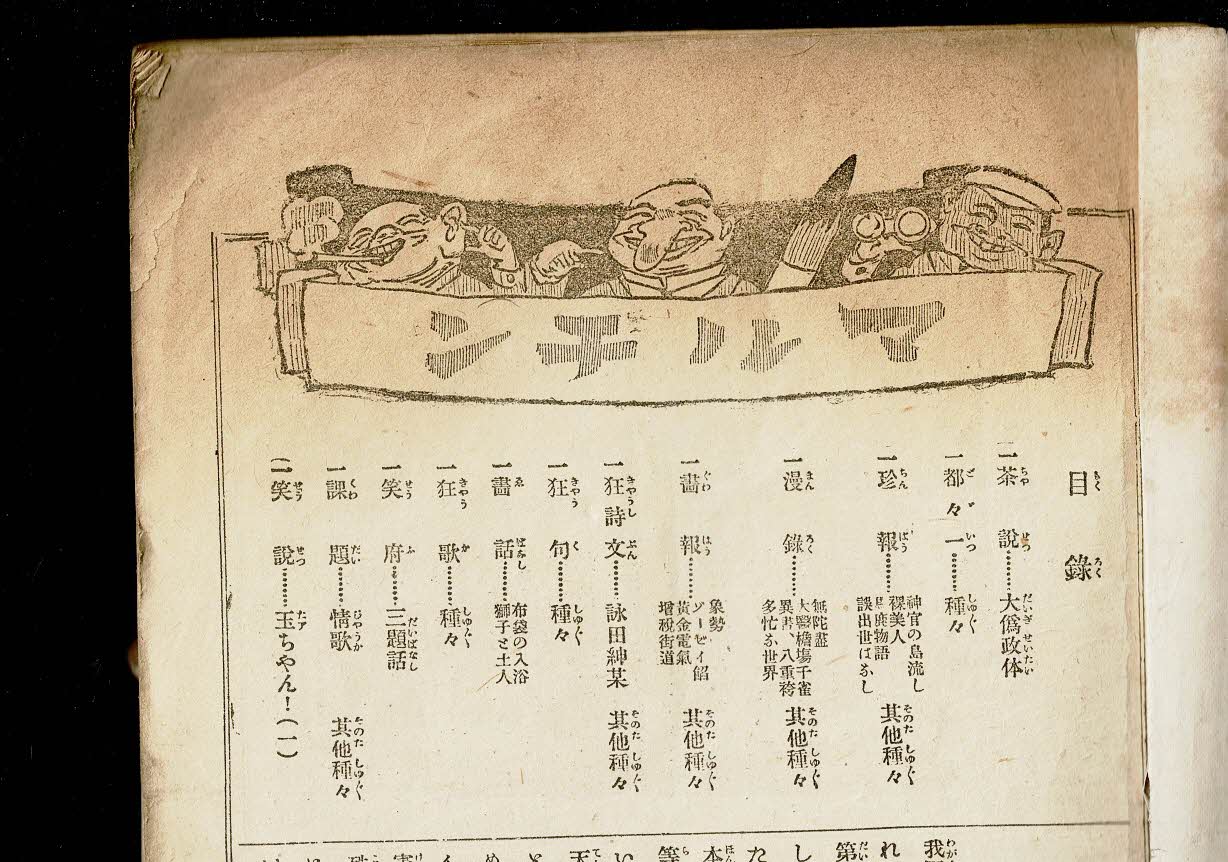 マルチン
目錄
一茶說………大僞政体
一都々一………種々
一珍報………神官の島流し
裸美人
馬鹿物語
誤出世ばなし
其他種々
一漫錄………無陀盡
異書、八重袴
多忙な世界
其他種々
一畫報………象勢
ゾーゼイ餡
黃金電氣
增税街道
其他種々
一狂詩文………詠田紳某
其他種々
一狂句………種々
一畫話………布袋の入浴
獅子と土人
一狂歌………種々
一笑府………三題話
一課題………情歌
其他種々
一笑說………玉ちやん！(一)
我
れ
第
し
た
本
等
い
天
と
め